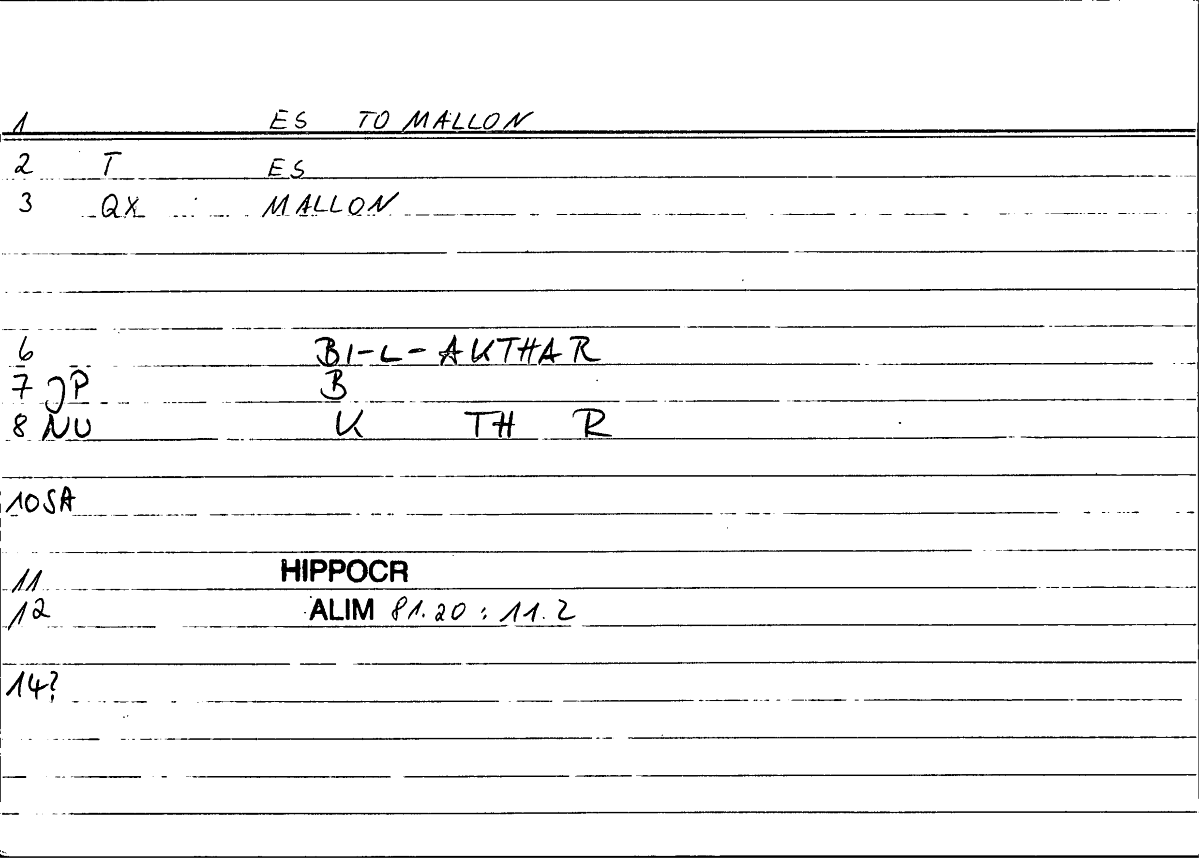 1 ES TO MALLON
2 T ES
3 QX MALLON
6 BI-L-AKTHAR
7 JP B
8 NU K TH R
10 SA
11 HIPPOCR
12 ALIM 81.20 : 11.2
14?